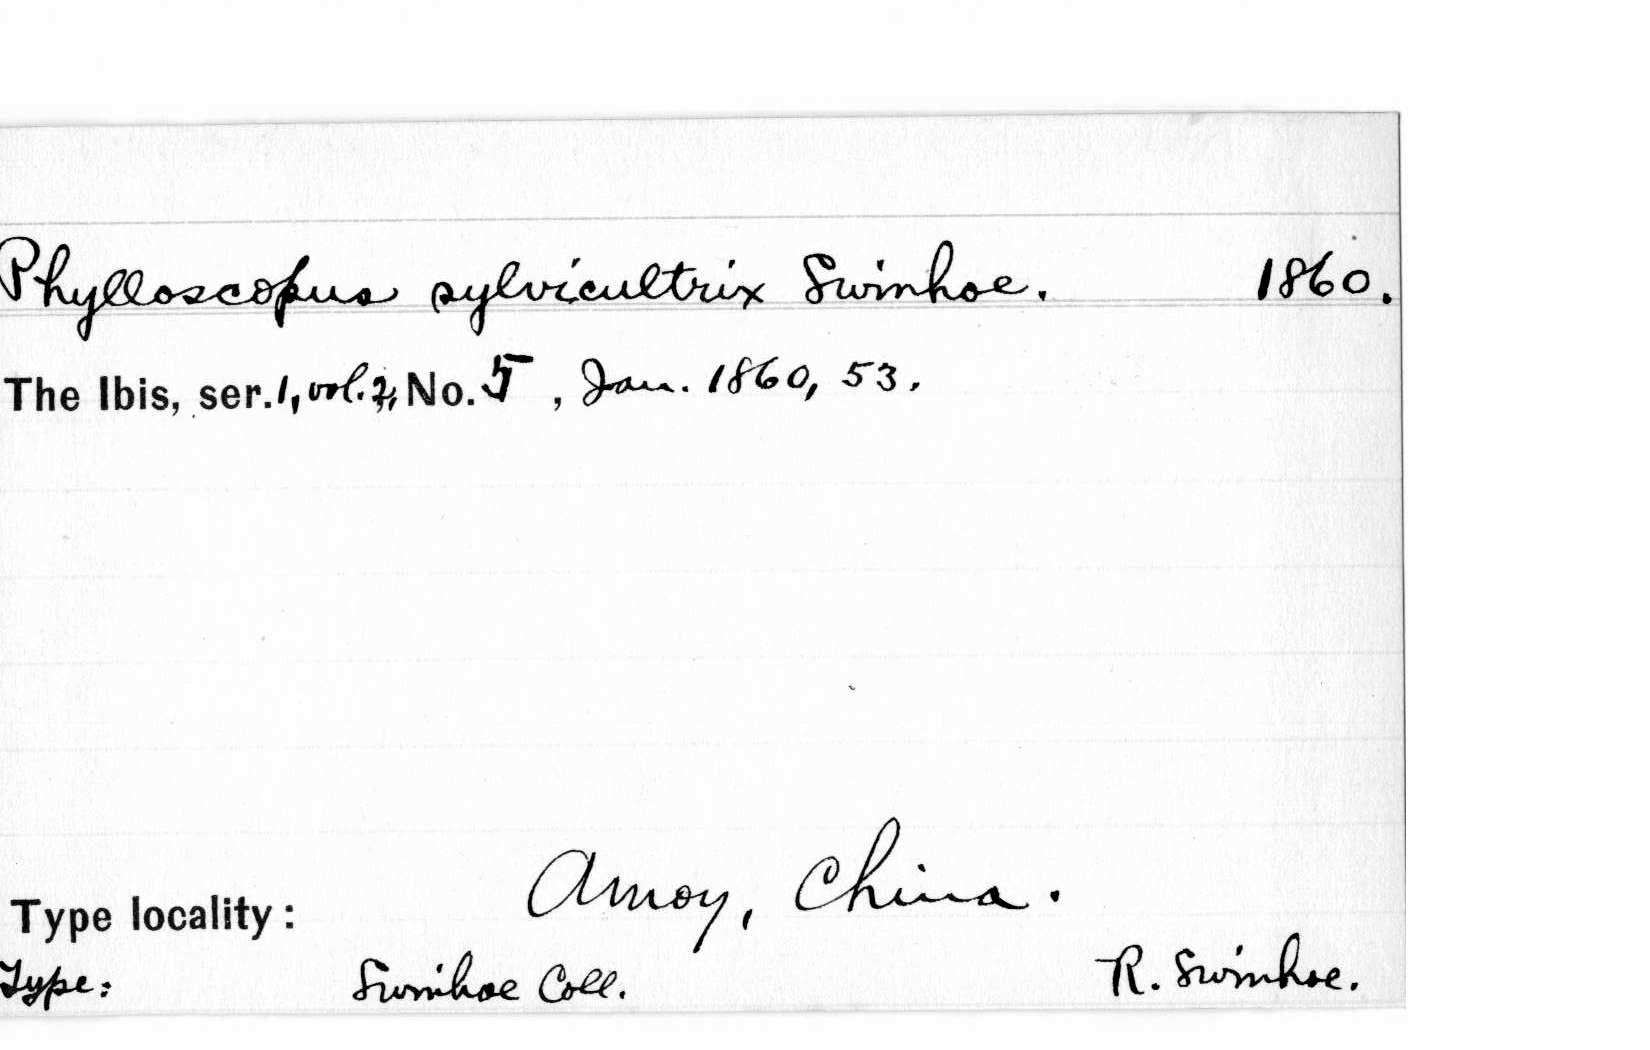 Phylloscopus sylvicultrix Swinhoe. 1860.
The Ibis, ser. 1, vol. 2, No. 5, Jan. 1860, 53.
Type locality: Amoy, China.
Type: Swinhoe Coll. R. Swinhoe.